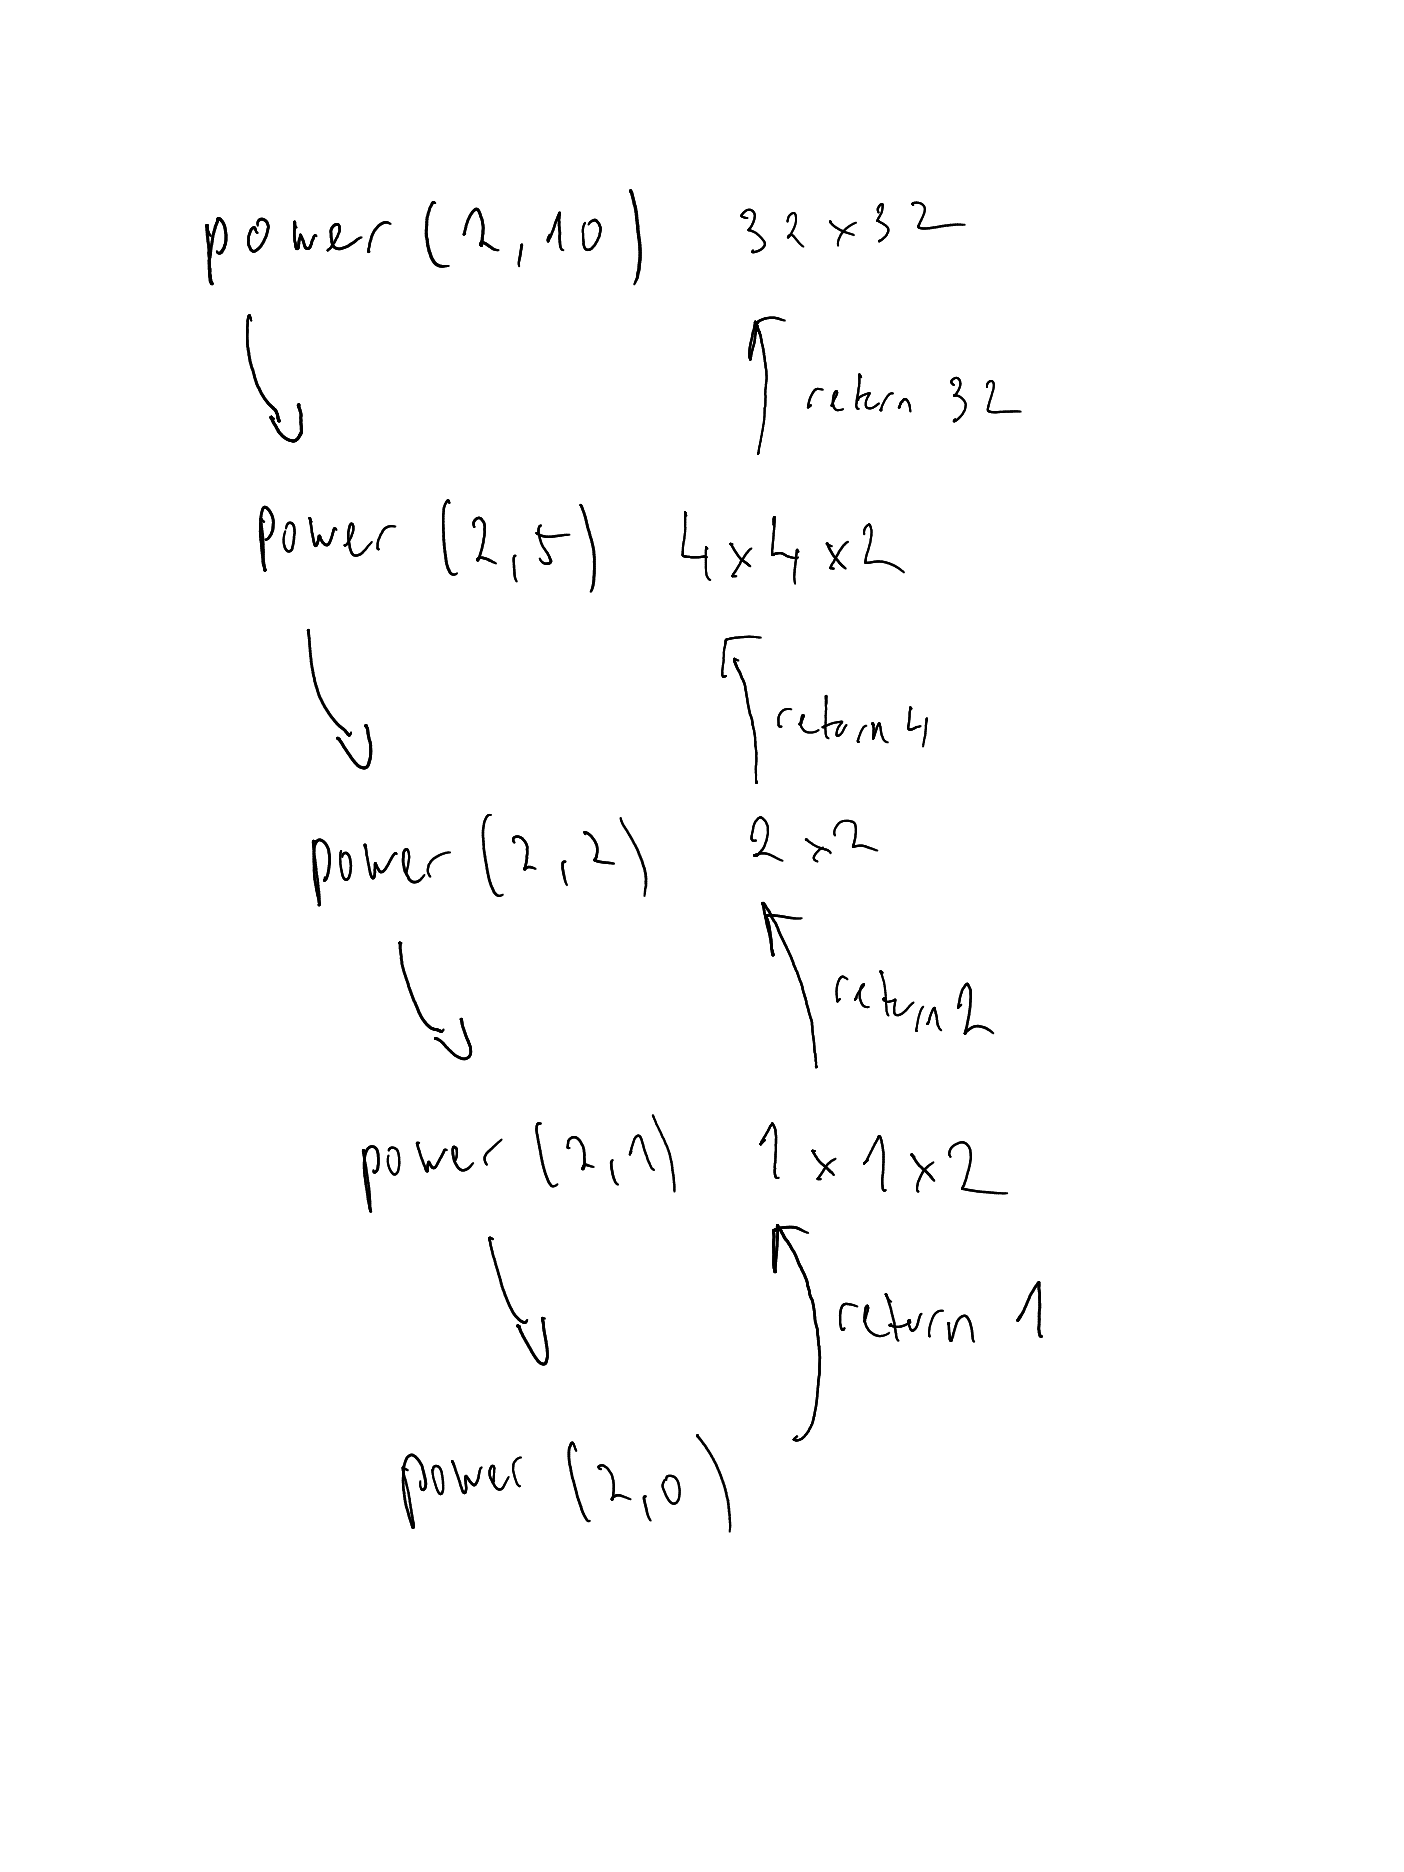 power (2,10) 32 x 32
return 32
power (2,5) 4 x 4 x 2
return 4
power (2,2) 2 x 2
return 2
power (2,1) 1 x 1 x 2
return 1
power (2,0)